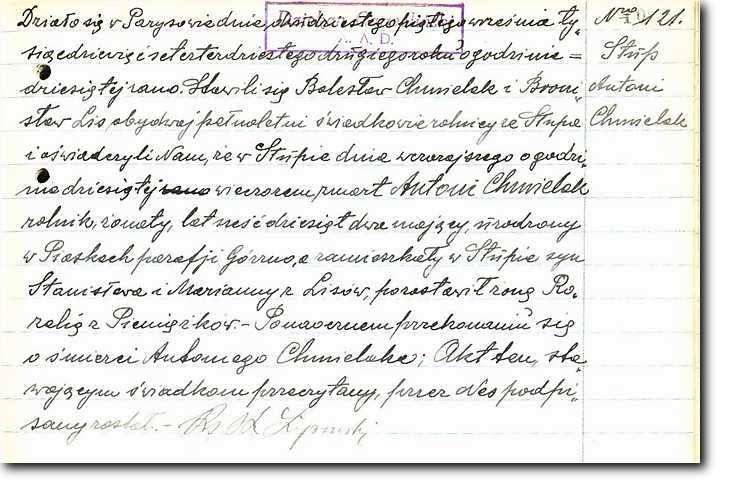 Działo się w Parysowie dnia, dwudziestego piątego września ty-
siąc dziewięćset czterdziestego drugiego roku o godzinie =
dziesiątej rano. Stawili się Bolesław Chmielak i Broni-
sław Lis obydwaj pełnoletni świadkowie rolnicy ze Słupa
i oświadczyli Nam, że w Słupie dnia wczorajszego o godzi-
nie dziesiątej rano wieczorem, zmarł Antoni Chmielak
rolnik, żonaty, lat sześćdziesiąt dwa mający, urodzony
w Piaskach parafji Górzno, a zamieszkały w Słupie syn
Stanisława i Marianny z Lisów, pozostawił żonę Ro-
zalię z Pieniążków. - Po naocznem przekonaniu się
o śmierci Antoniego Chmielaka; Akt ten, sta-
wającym świadkom przeczytany, przez Nas podpi-
sany został. -
A. D.
Nro 121.
Słup
Antoni
Chmielak